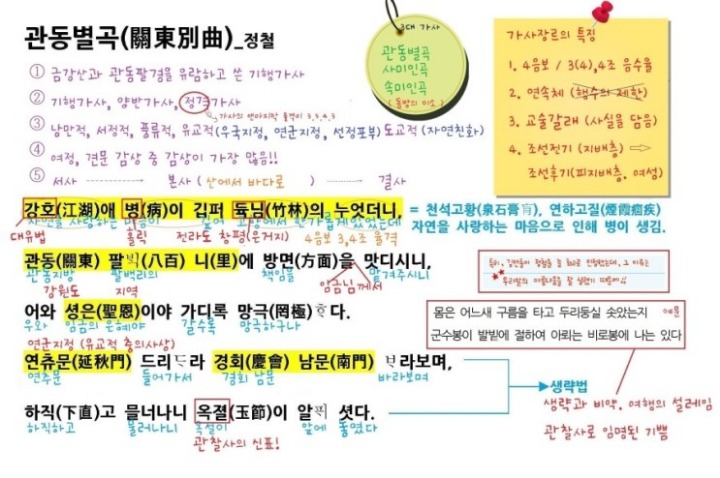 관동별곡(關東別曲)_정철
① 금강산과 관동팔경을 유람하고 쓴 기행가사
② 기행가사, 양반가사, 정격가사
가사의 맨마지막 율격이 3,5,4,3
③ 낭만적, 서정적, 풍류적, 유교적(우국지정, 연군지정, 선정포부) 도교적 (자연친화)
④ 여정, 견문 감상 중 감상이 가장 많음!!
⑤ 서사 → 본사 ( 산에서 바다로 ) → 결사
3대 가사
관동별곡
사미인곡
속미인곡
( 동방의 이소 )
가사장르의 특징
1. 4음보 / 3(4),4조 음수율
2. 연속체 (행수의 제한)
3. 교술갈래 (사실을 담음)
4. 조선전기 (지배층) ⇨
조선후기(피지배층. 여성)
강호(江湖)애 병(病)이 깁퍼 듁님(竹林)의 누엇더니,
자연을 사랑하는 마음이 깊어 고향에서 한가롭게 있었는데
대유법 홀릭 전라도 창평(은거지) 4음보 3,4조 율격
= 천석고황(泉石膏肓), 연하고질(煙霞痼疾)
자연을 사랑하는 마음으로 인해 병이 생김.
관동(關東) 팔(八百) 니(里)에 방면(方面)을 맛디시니,
관동지방 팔백리의 책임을 맡겨주시니
강원도 지역 임금님께서
우리말의 아름다움을 잘 살렸기 때문에!!
어와 셩은(聖恩)이야 가디록 망극(罔極)다.
우와 임금의 은혜야 갈수록 망극하구나
연군지정 (유교적 충의사상)
몸은 어느새 구름을 타고 두리둥실 솟았는지 예문
군수봉이 발밑에 절하여 아뢰는 비로봉에 나는 있다
연츄문(延秋門) 드리라 경회(慶會) 남문(南門) 라보며,
연추문 들어가서 경회 남문 바라보며
생략법
생략과 비약. 여행의 설레임
관찰사로 임명된 기쁨
하직(下直)고 믈너나니 옥졀(玉節)이 알 셧다.
하직하고 물러나니 옥절이 앞에 놓였다
관찰사의 신표!